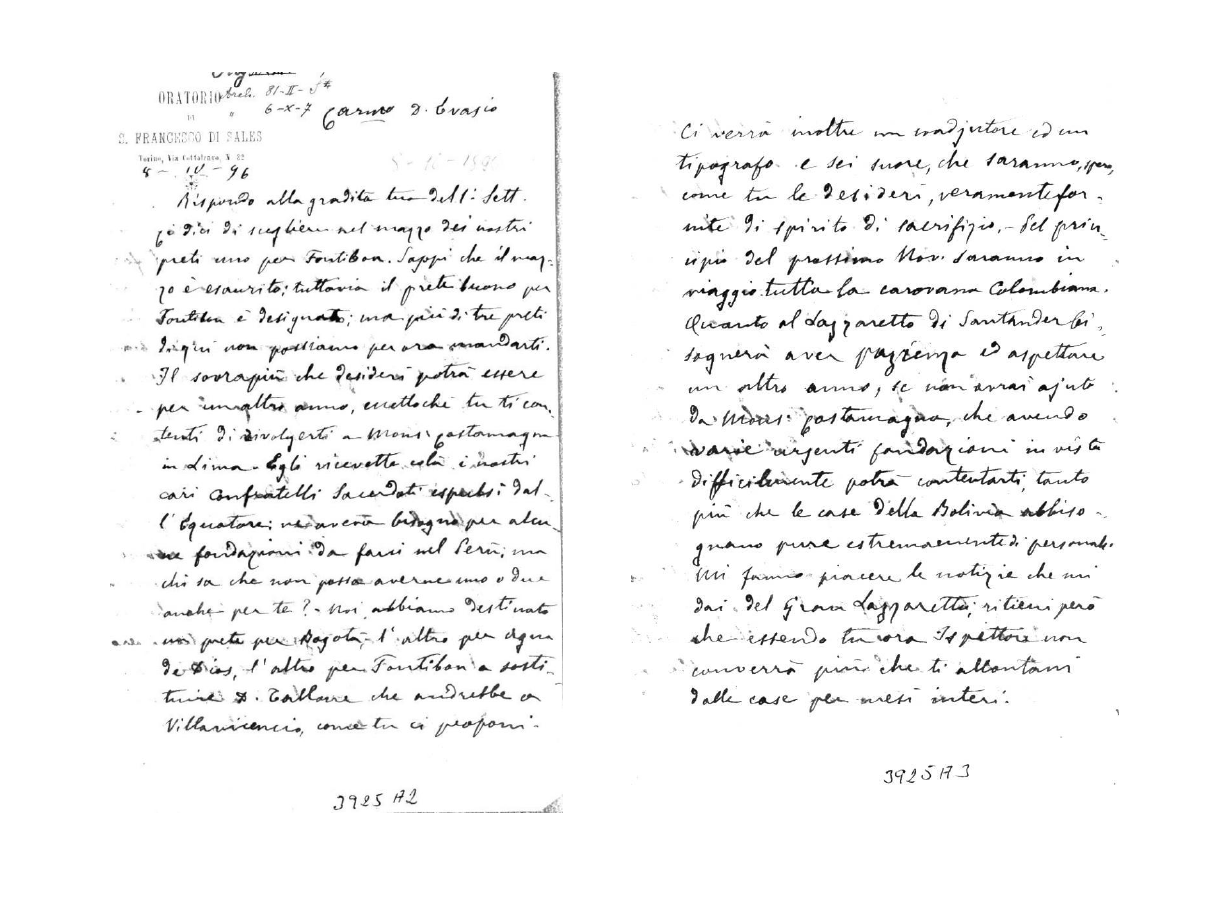 ORATORIO
DI
S. FRANCESCO DI SALES
Torino, Via Cottolengo, N. 32
8 - IV - 96
Arch. 81-II-5ª
" 6-X-7
Carmo D. Evasio
Rispondo alla gradita tua dell'1. Sett.
Ci dici di scegliere nel mazzo dei nostri
preti uno per Fontibon. Sappi che il maz-
zo è esaurito; tuttavia il prete buono per
Fontibon è designato; ma più di tre preti
di qui non possiamo per ora mandarti.
Il sovrapiù che desideri potrà essere
per un altro anno, a
tenti di rivolgerti a Mons. Costamagna
in Lima. Egli ricevette colà i nostri
cari Confratelli Sacerdoti espulsi dal-
l'Equatore; ne avrà bisogno per alcu-
ne fondazioni da farsi nel Perù, ma
chi sa che non possa averne uno o due
anche per te? - Noi abbiamo destinato
un prete per Bogotà, l'altro per Agua
de Dios, l'altro per Fontibon a sosti-
tuire D. Tallone che andrebbe a
Villavicencio, come tu ci proponi.-
3925 A2
Ci verrà inoltre un coadjutore ed un
tipografo e sei suore, che saranno, spero,
come tu le desideri, veramente for-
nite di spirito di sacrifizio. - Pel prin-
cipio del prossimo Nov. saranno in
viaggio tutta la carovana Colombiana.
Quanto al Lazzaretto di Santander bi-
sognerà aver pazienza ed aspettare
un altro anno, se non avrai ajuto
da Mons. Costamagna, che avendo
varie urgenti fondazioni in vista
difficilmente potrà contentarti, tanto
più che le case della Bolivia abbiso-
gnano pure estremamente di personale.
Mi fanno piacere le notizie che mi
dai del Gran Lazzaretto; ritieni però
che essendo tu ora Ispettore non
converrà più che ti allontani
dalle case per mesi interi.
3925 A3